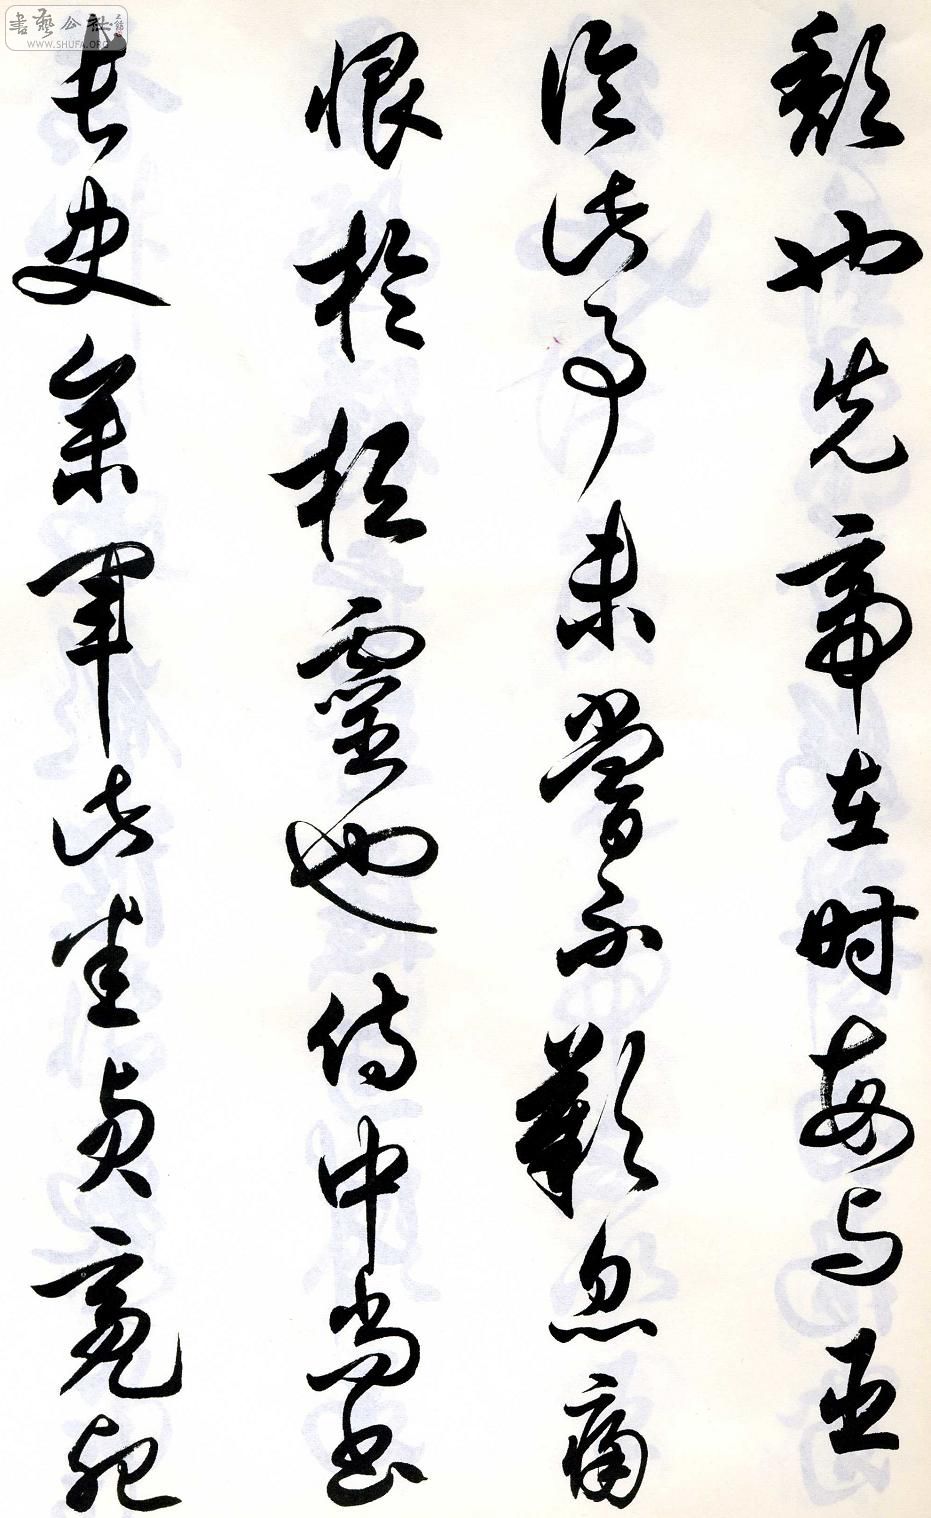 頹也先帝在時每與臣
論此事未嘗不歎息痛
恨於桓靈也侍中尚書
長史參軍此悉貞亮死
書藝公社
WWW.SHUFA.ORG